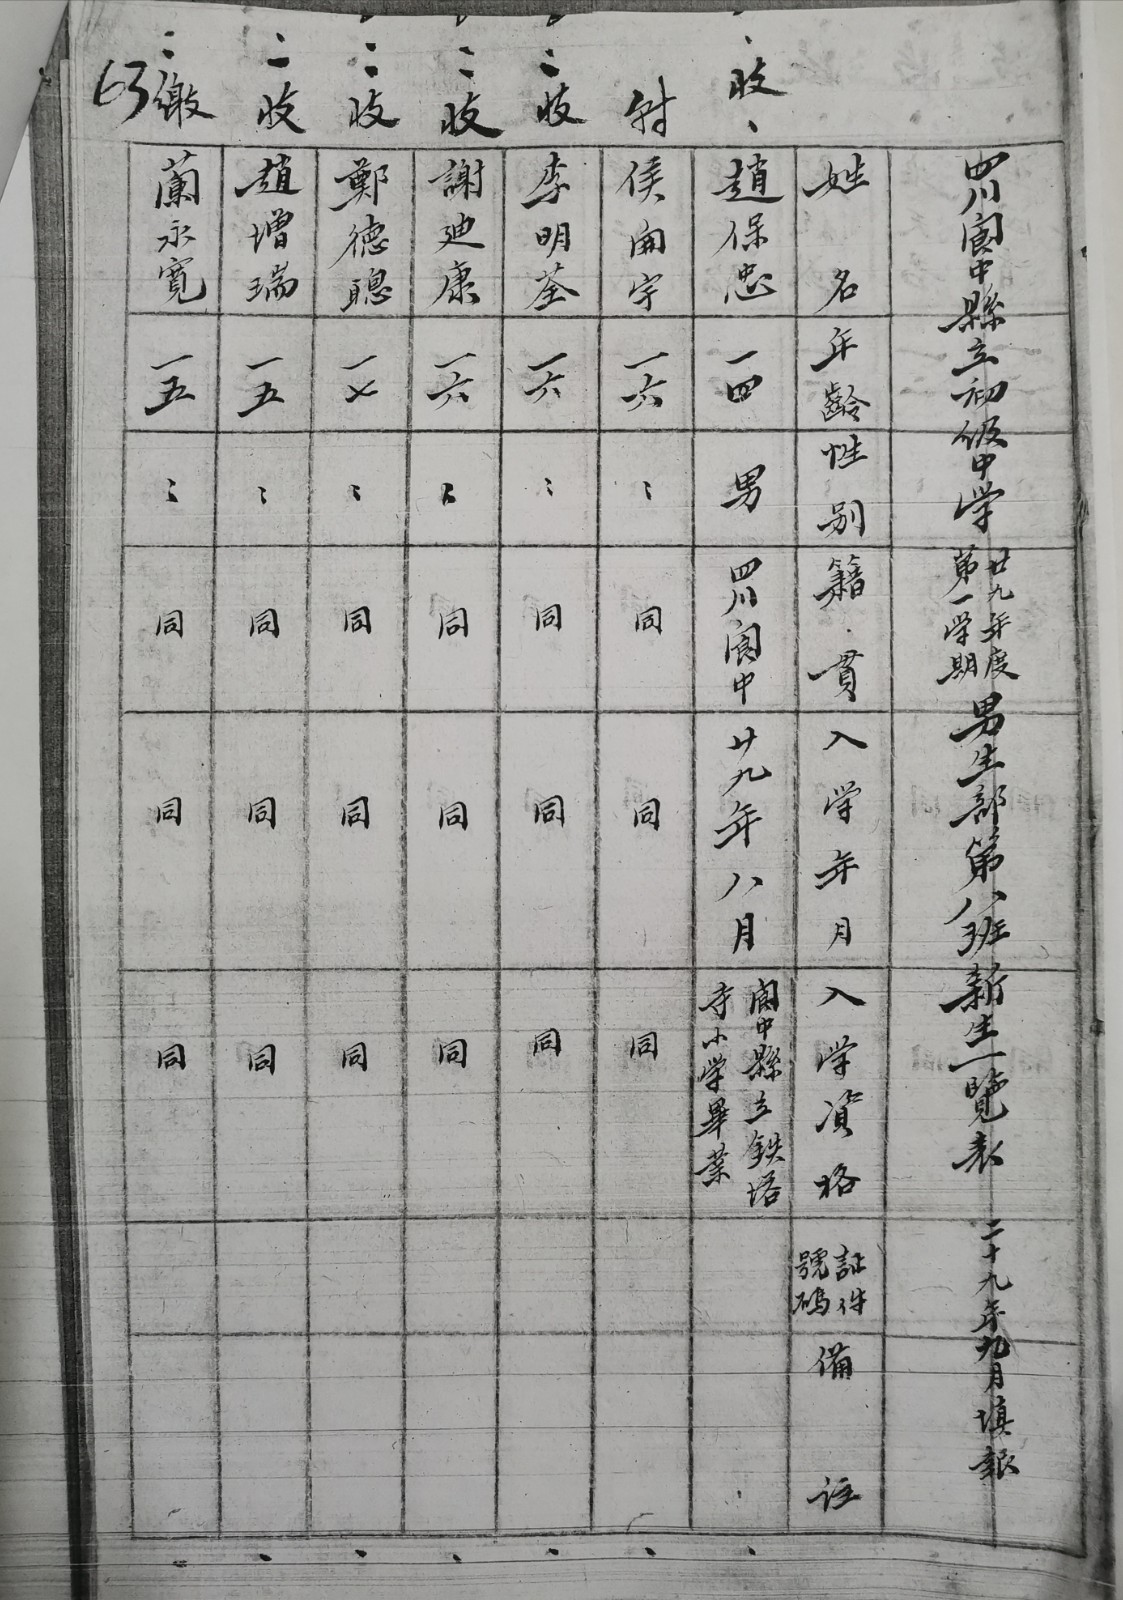 四川閬中縣立初級中学廿九年度第一学期男生部第八班新生一覽表 二十九年九月填報
姓名 年齡 性別 籍貫 入学年月 入学資格 証件號碼 備註
收 趙保忠 一四 男 四川閬中 廿九年八月 閬中縣立鉄塔寺小学畢業
侯開宇 一六 〻 同 同 同
〻收 李明荃 一六 〻 同 同 同
〻收 謝廸康 一六 〻 同 同 同
〻收 鄭德聰 一七 〻 同 同 同
〻收 趙增瑞 一五 〻 同 同 同
〻繳 蘭永寬 一五 〻 同 同 同
63